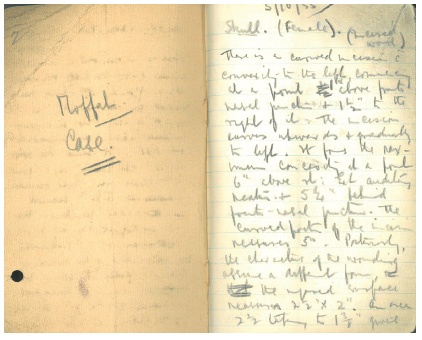 Moffat
Case.
5/10/35
Skull. (Female). (Incised wound)
There is a curved incision c
convexity to the left, commencing
at a point 1½" above fronto
nasal junction & 1½" to the
right of it. The incision
curves upwards & gradually
to left. It forms the max-
imum convexity at a point
6" above the left auditory
meatus & 5½" behind
fronto-nasal junction. The
curved part of the incision
measures 5". Posteriorly,
the characters of the wounding
assume a different form,
the exposed surface
measures 2½" x 2". an area
2½ tapering to 1¾"